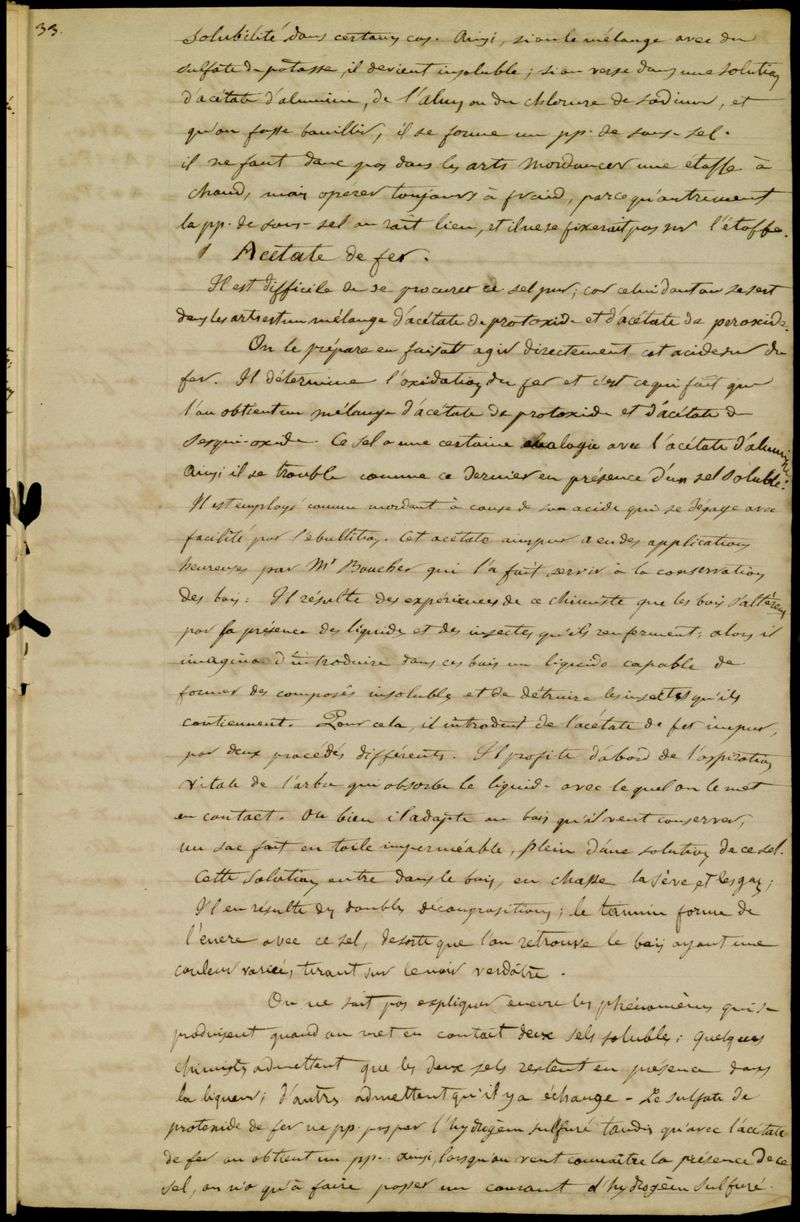 33.
solubilité dans certains cas. Ainsi, si on le mélange avec du
sulfate de potasse, il devient insoluble; si on verse dans une solution
d'acétate d'alumine, de l'alun ou du chlorure de sodium, et
qu'on fasse bouillir, il se forme un pp. de sous-sel.
il ne faut donc pas dans les arts mordancer une etoffe à
chaud, mais operer toujours à froid, parce qu'autrement
la pp. de sous-sel aurait lieu, et il ne se fixerait pas sur l'étoffe.
Acétate de fer.
Il est difficile de se procurer ce sel pur; car celui dont on se sert
dans les arts est un mélange d'acétate de protoxide et d'acétate de peroxide.
On le prépare en faisant agir directement cet acide sur du
fer. Il détermine l'oxidation du fer et c'est ce qui fait que
l'on obtient un mélange d'acétate de protoxide et d'acétate de
sesqui-oxide. Ce sel a une certaine analogie avec l'acétate d'alumine.
Ainsi il se trouble comme ce dernier en présence d'un sel soluble.
Il est employé comme mordant à cause de son acide qui se dégage avec
facilité par l'ebullition. Cet acétate impur a eu des applications
heureuses par Mr Boucher qui l'a fait servir à la conservation
des bois: Il résulte des expériences de ce chimiste que les bois s'altèrent
par la présence des liquides et des insectes qu'ils renferment; alors il
imagina d'introduire dans ces bois un liquide capable de
former des composés insolubles et de détruire les insectes qu'ils
contiennent. Pour cela, il introduit de l'acétate de fer impur,
par deux procédés différents. Il profite d'abord de l'aspiration
vitale de l'arbre qui absorbe le liquide avec lequel on le met
en contact. Ou bien il adapte au bois qu'il veut conserver,
un sac fait en toile imperméable, plein d'une solution de ce sel.
Cette solution entre dans le bois, en chasse la sève et les gaz;
Il en résulte des doubles décompositions; le tannin forme de
l'encre avec ce sel, de sorte que l'on retrouve le bois ayant une
couleur variée, tirant sur le noir verdâtre.
On ne sait pas expliquer encore les phénomènes qui se
produisent quand on met en contact deux sels solubles; quelques
chimistes admettent que les deux sels restent en présence dans
la liqueur; d'autres admettent qu'il y a échange - Le sulfate de
protoxide de fer ne pp. pas par l'hydrogène sulfuré tandis qu'avec l'acétate
de fer on obtient un pp. ainsi, lorsqu'on veut connaître la présence de ce
sel, on n'a qu'à faire passer un courant d'hydrogène sulfuré.